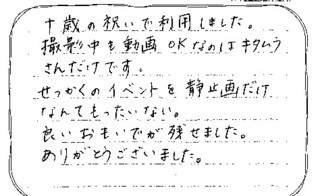 十歳の祝いで利用しました。
撮影中も動画OKなのはキタムラ
さんだけです。
せっかくのイベントを静止画だけ
なんてもったいない。
良いおもいでが残せました。
ありがとうございました。